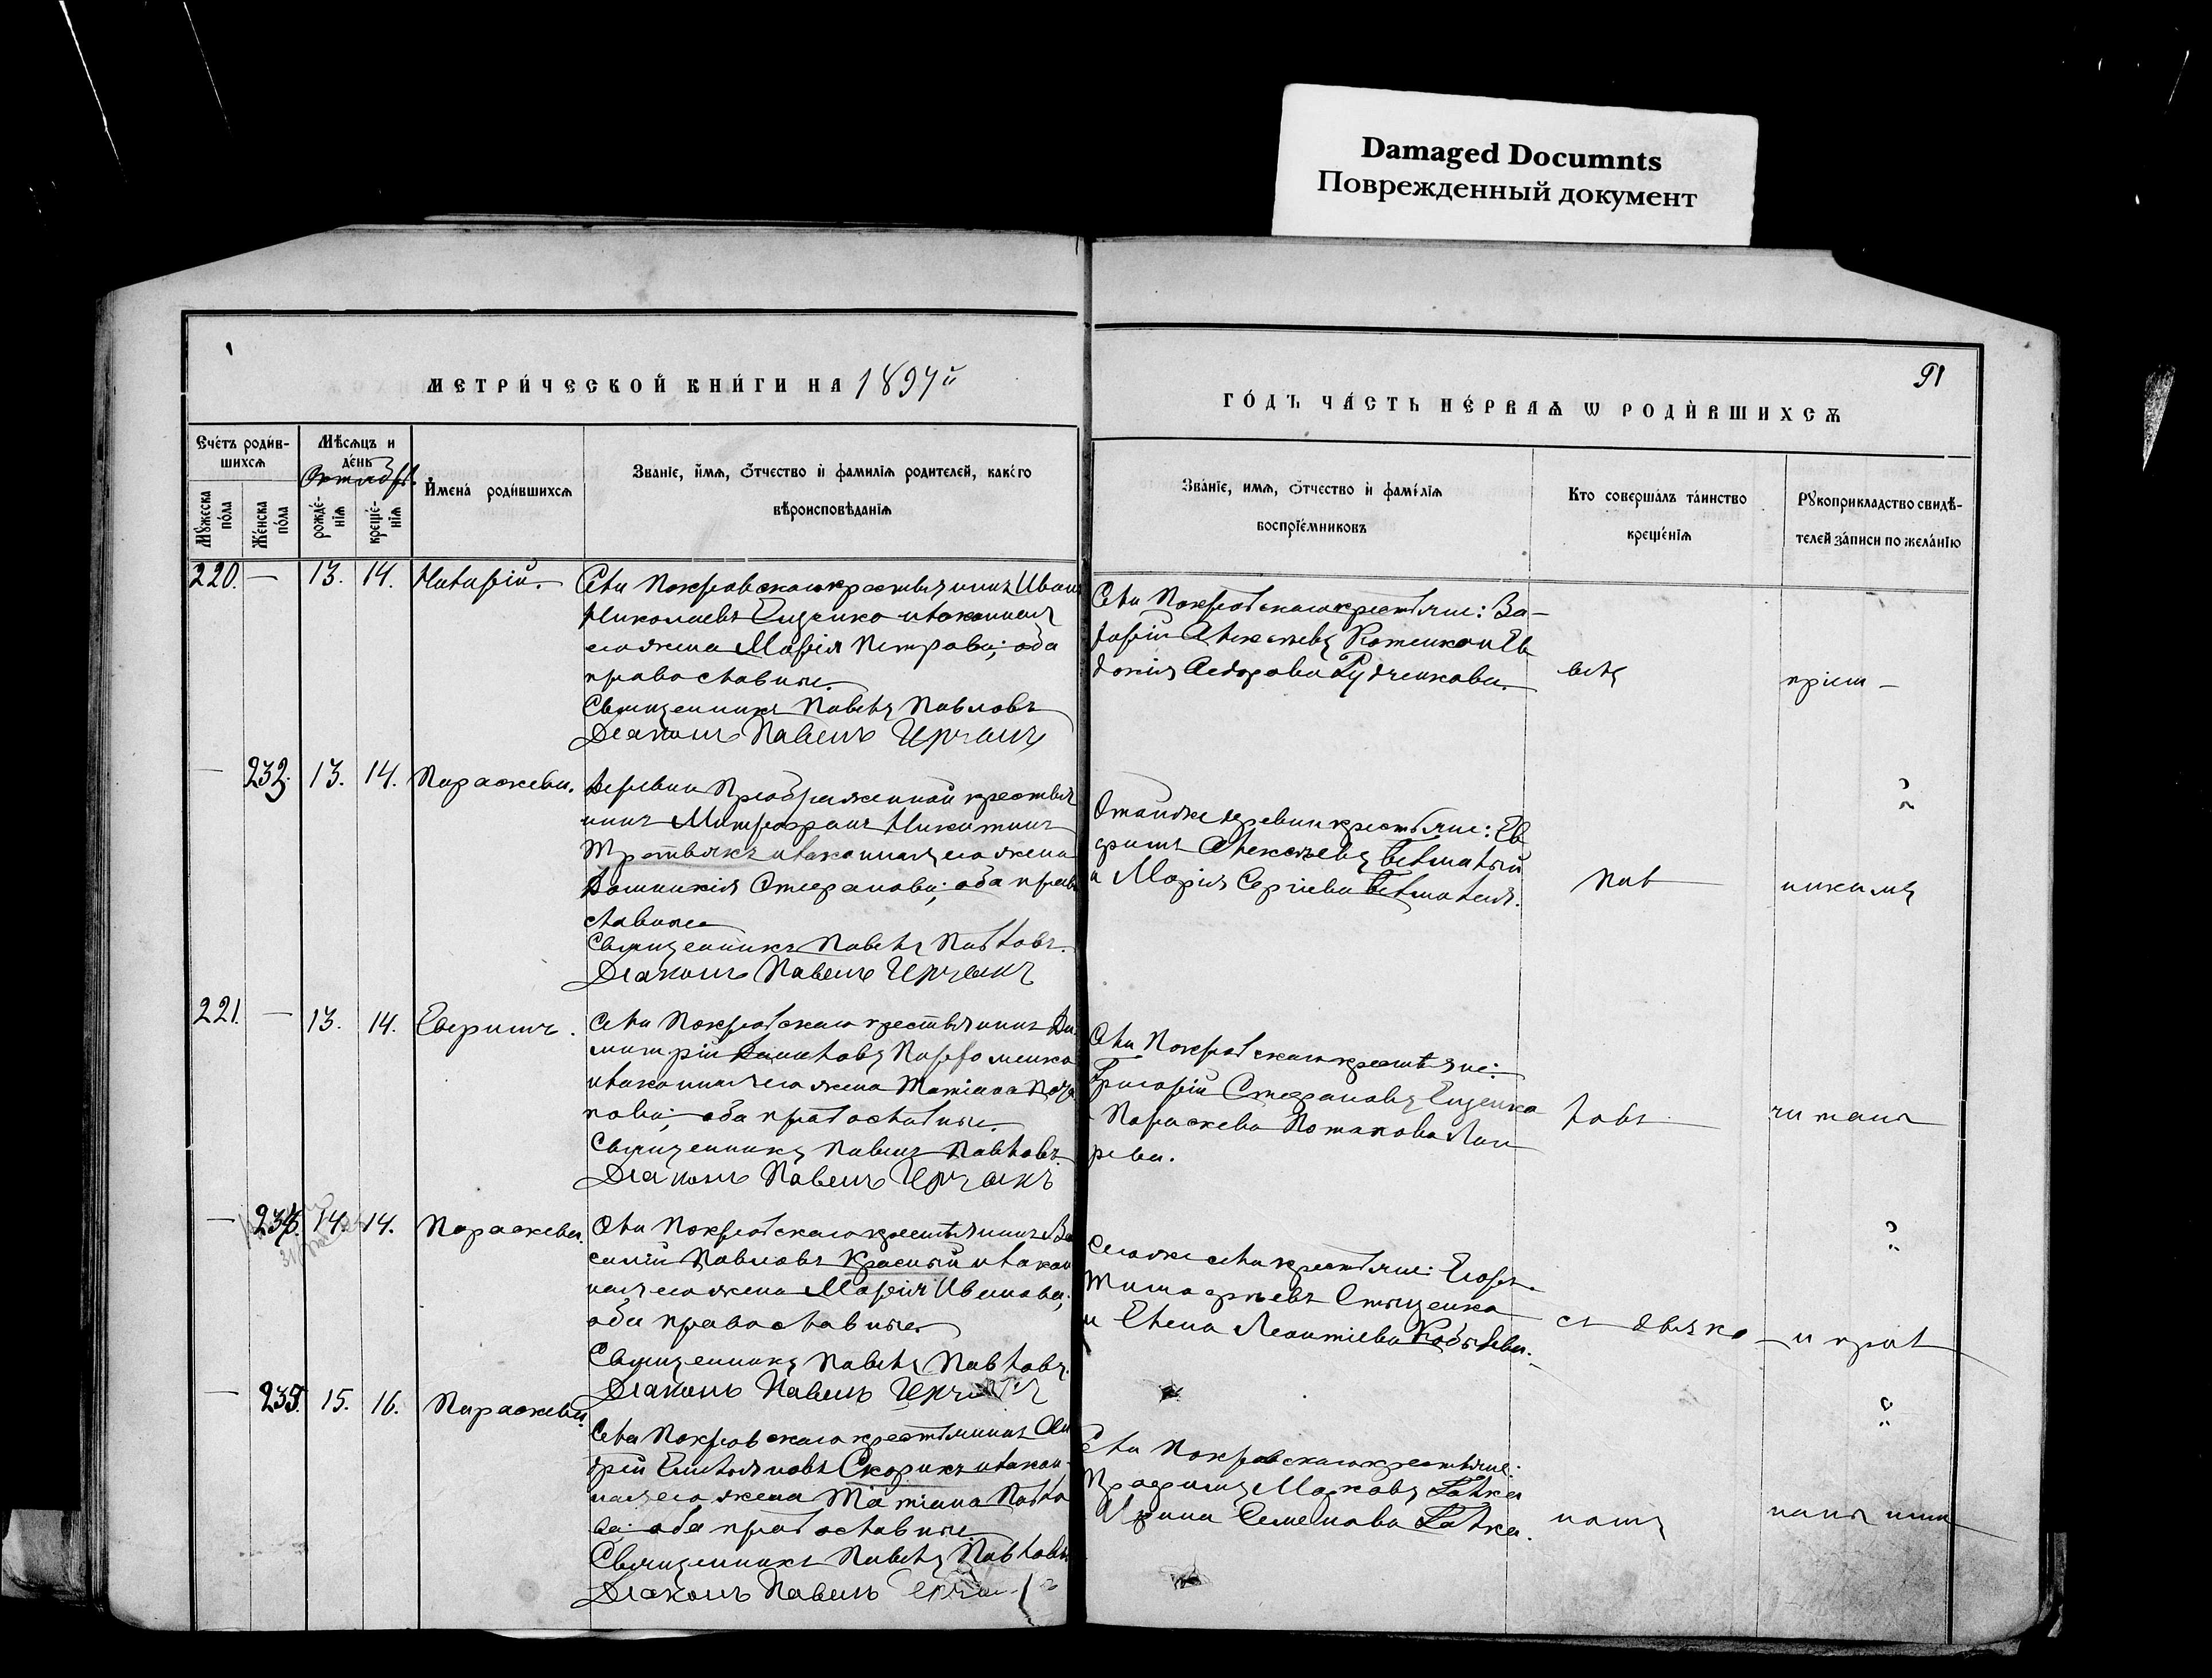 Damaged Documnts
Поврежденный документ
МЕТРИ́ЧЕСКОЙ КНИ́ГИ НА 1897й
91
ГО́ДЪ ЧА́СТЬ ПЕ́РВАѦ Ѡ РОДИ́ВШИХСѦ
Счетъ роди́в-
шихсѧ
Мѣ́сѧцъ и
де́нь
Октябрь.
Мꙋ́жеска по́ла
Же́нска по́ла
рожде́-нїѧ
креще́-нїѧ
И҆мена̀ роди́вшихсѧ
Зва́нїе, и҆́мѧ, ѻ҆́тчество и҆ фамилїѧ родителей, како́го
вѣроисповѣ́данїѧ
Зва́нїе, имѧ, ѻ҆́тчество и҆ фамі́лїѧ
воспрїе́мниковъ
Кто соверша́лъ та́инство
креще́нїѧ
Рꙋкоприкладство свидѣ́-
телей за́писи по жела́нїю
220. — 13. 14.
Села Покровскаго крестьянинъ Иванъ
Николаевъ Ещенко и законная
его жена Марія Петрова; оба
православные.
Священникъ Павелъ Павловъ
Діаконъ Павелъ
Села Покровскаго крестьяне: За-
харій Алексѣевъ Котенко и Ев
докія Ѳедорова Рудченкова.
— 232. 13. 14. Параскева.
Деревни Преображенной крестья
нинъ Митрофанъ Никитинъ
Третьякъ и законная его жена
Домникія Стефанова; оба право
славные
Священникъ Павелъ Павловъ.
Діаконъ Павелъ
Той же деревни крестьяне: Ев
фимъ Алексѣевъ
и Марія Сергіева
221. — 13. 14. Евфимъ.
Села Покровскаго крестьянинъ Ди
митрій Даниловъ Парфоменко
и законная его жена Татіана
оба православные.
Священникъ Павелъ Павловъ.
Діаконъ Павелъ
Села Покровскаго крестьяне:
Григорій Стефановъ Ещенко
Параскева Потапова
— 14. 14. Параскева.
Села Покровскаго крестьянинъ Ва
силій Павловъ Красный и закон
ная его жена Марія Иванова;
оба православные.
Священникъ Павелъ Павловъ.
Діаконъ Павелъ
Сего же села крестьяне: Егоръ
Тимофѣевъ Стыценко
и Елена Леонтіева Кобылева.
— 235. 15. 16. Параскева.
Села Покровскаго крестьянинъ Ан
дрей Емельяновъ Скорикъ и закон-
ная его жена Татіана Павло
ва; оба православные.
Священникъ Павелъ Павловъ
Діаконъ Павелъ
Села Покровскаго крестьяне:
Трофимъ Марковъ
Ирина Семенова